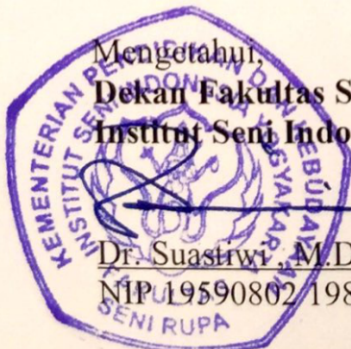 Mengetahui,
Dekan Fakultas S
Institut Seni Indo
Dr. Suastiwi, M.D
NIP 19590802 198
KEMENTERIAN PENDIDIKAN DAN KEBUDAYAAN
INSTITUT SENI INDONESIA YOGYAKARTA
FAKULTAS
SENI RUPA